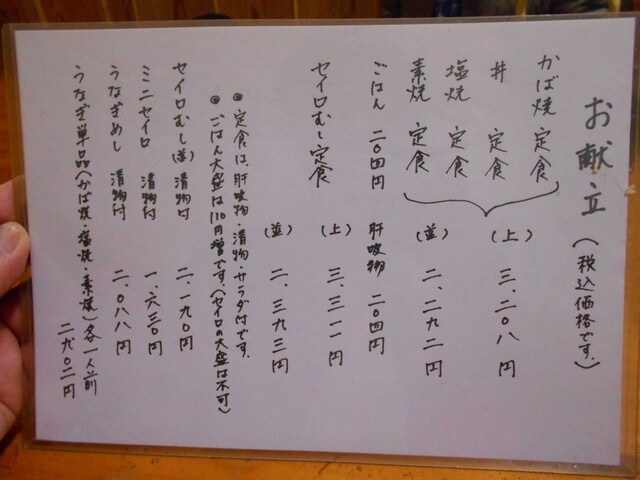 お献立(税込価格です。)
かば焼 定食
丼 定食
塩焼 定食
素焼 定食
(上) 三、二〇八円
(並) 二、二九二円
ごはん 二〇四円 肝吸物 二〇四円
セイロむし定食 (上) 三、三一一円
(並) 二、三九三円
◎定食は、肝吸物・漬物・サラダ付です。
◎ごはん大盛は110円増です。(セイロの大盛は不可)
セイロむし(並) 漬物付 二、一九〇円
ミニセイロ 漬物付 一、六三〇円
うなぎめし 漬物付 二、〇八八円
うなぎ単品(かば焼・塩焼・素焼)各一人前
二九〇二円